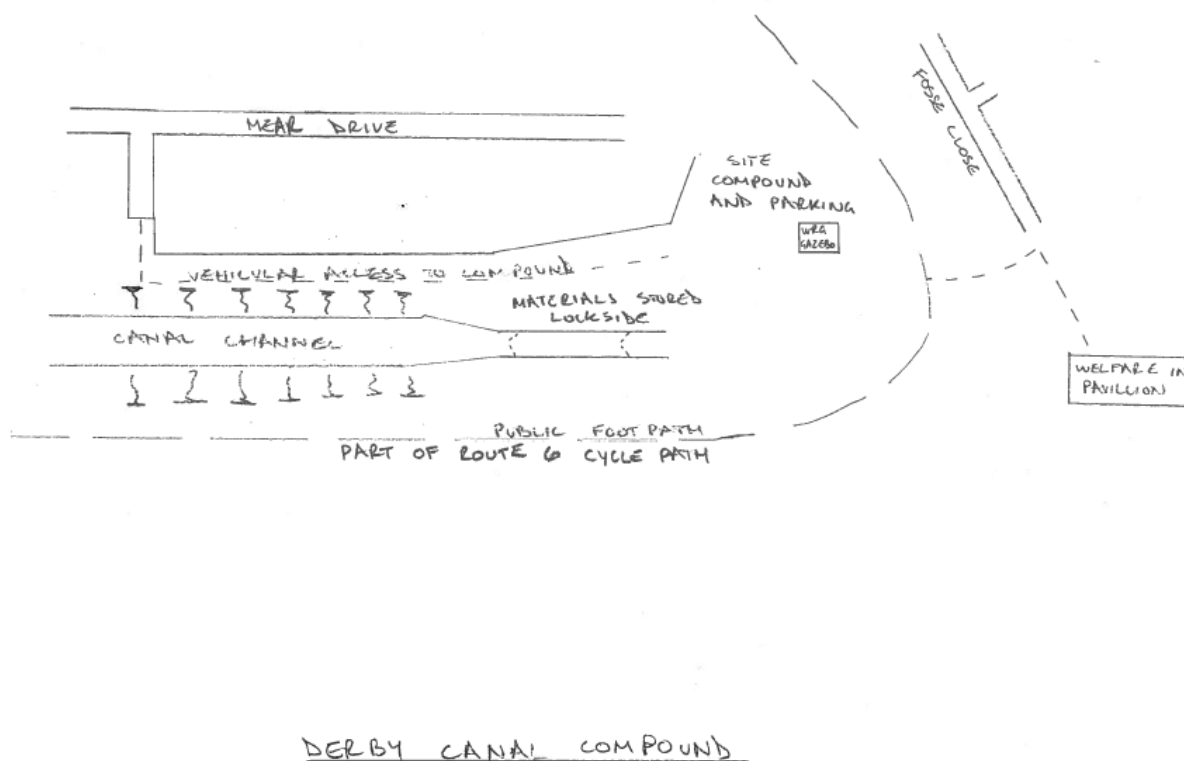 MEAR DRIVE
FOSSE CLOSE
SITE
COMPOUND
AND PARKING
WRG
GAZEBO
VEHICULAR ACCESS TO COMPOUND
MATERIALS STORED
LOCKSIDE
CANAL CHANNEL
WELFARE IN
PAVILLION
PUBLIC FOOT PATH
PART OF ROUTE 6 CYCLE PATH
DERBY CANAL COMPOUND